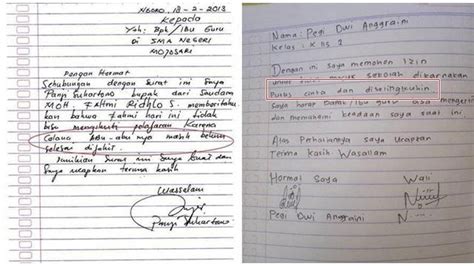 Ngoro, 18-2-2013
Kepada
Yth: Bpk/Ibu Guru
Di SMA NEGERI
MOJOSARI
Dengan Hormat
Sehubungan dengan surat ini Saya
Panji Suhartono bapak dari Saudara
MOH. Fahmi Ridhlo S. memberitahu
kan bahwa Fahmi hari ini tidak
bisa mengikuti pelajaran Karena
Celana abu-abu nya masih belum
selesai dijahit.
Demikian Surat ini Saya buat dan
Saya ucapkan terima kasih
Wassalam
Panji Suhartono
Nama: Pegi Dwi Anggraini
Kelas: X
Dengan ini saya memohon Izin
untuk tidak masuk sekolah dikarenakan
Putus cinta dan diselingkuhin
Saya harap bapak/ibu guru bisa mengerti
dan memahami keadaan saya saat ini.
Atas Perhatiannya Saya Ucapkan
Terima Kasih. Wasallam
Hormat Saya Wali
Pegi Dwi Anggraini